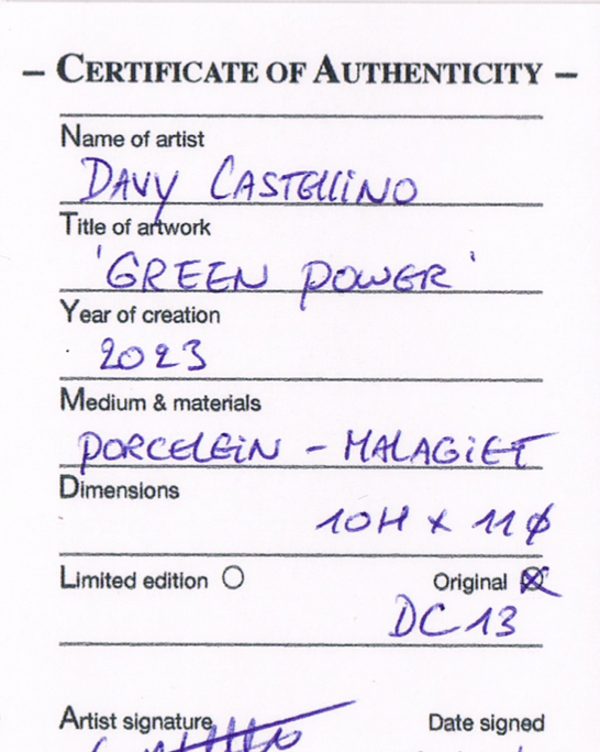 – CERTIFICATE OF AUTHENTICITY –
Name of artist
DAVY CASTELLINO
Title of artwork
'GREEN POWER'
Year of creation
2023
Medium & materials
PORCELEIN - MALAGIET
Dimensions
10H x 11ϕ
Limited edition Original
DC 13
Artist signature Date signed